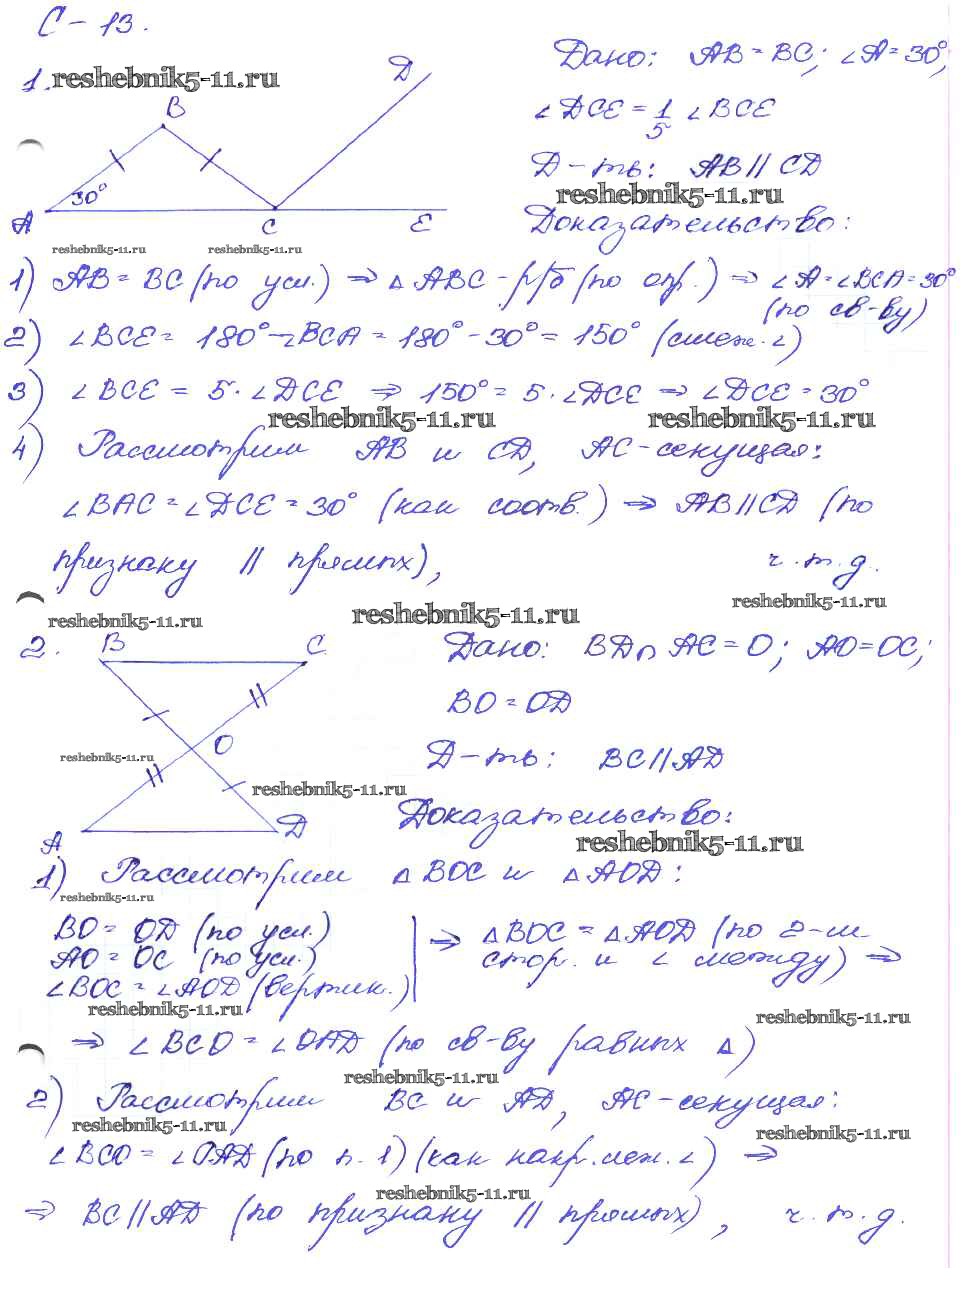 С-13.
1. reshebnik5-11.ru
D
B
30°
A
C
E
reshebnik5-11.ru reshebnik5-11.ru
Дано: AB = BC; ∠A = 30°,
∠DCE = 1/5 ∠BCE
Д-ть: AB || CD
reshebnik5-11.ru
Доказательство:
1) AB = BC (по усл.) ⇒ △ABC - р/б (по опр.) ⇒ ∠A = ∠BCA = 30°
(по св-ву)
2) ∠BCE = 180° - ∠BCA = 180° - 30° = 150° (смеж. ∠)
3) ∠BCE = 5 · ∠DCE ⇒ 150° = 5 · ∠DCE ⇒ ∠DCE = 30°
reshebnik5-11.ru reshebnik5-11.ru
4) Рассмотрим AB и CD, AC - секущая:
∠BAC = ∠DCE = 30° (как соотв.) ⇒ AB || CD (по
признаку || прямых), ч.т.д.
reshebnik5-11.ru reshebnik5-11.ru reshebnik5-11.ru
2.
B
C
O
A
D
reshebnik5-11.ru
reshebnik5-11.ru
Дано: BD ∩ AC = O; AO = OC;
BO = OD
Д-ть: BC || AD
Доказательство:
reshebnik5-11.ru
1) Рассмотрим △BOC и △AOD:
reshebnik5-11.ru
BO = OD (по усл.)
AO = OC (по усл.)
∠BOC = ∠AOD (вертик.)
⇒ △BOC = △AOD (по 2-м
стор. и ∠ между) ⇒
reshebnik5-11.ru reshebnik5-11.ru
⇒ ∠BCO = ∠OAD (по св-ву равных △)
reshebnik5-11.ru
2) Рассмотрим BC и AD, AC - секущая:
reshebnik5-11.ru reshebnik5-11.ru
∠BCO = ∠OAD (по п. 1) (как накр. леж. ∠) ⇒
reshebnik5-11.ru
⇒ BC || AD (по признаку || прямых), ч.т.д.